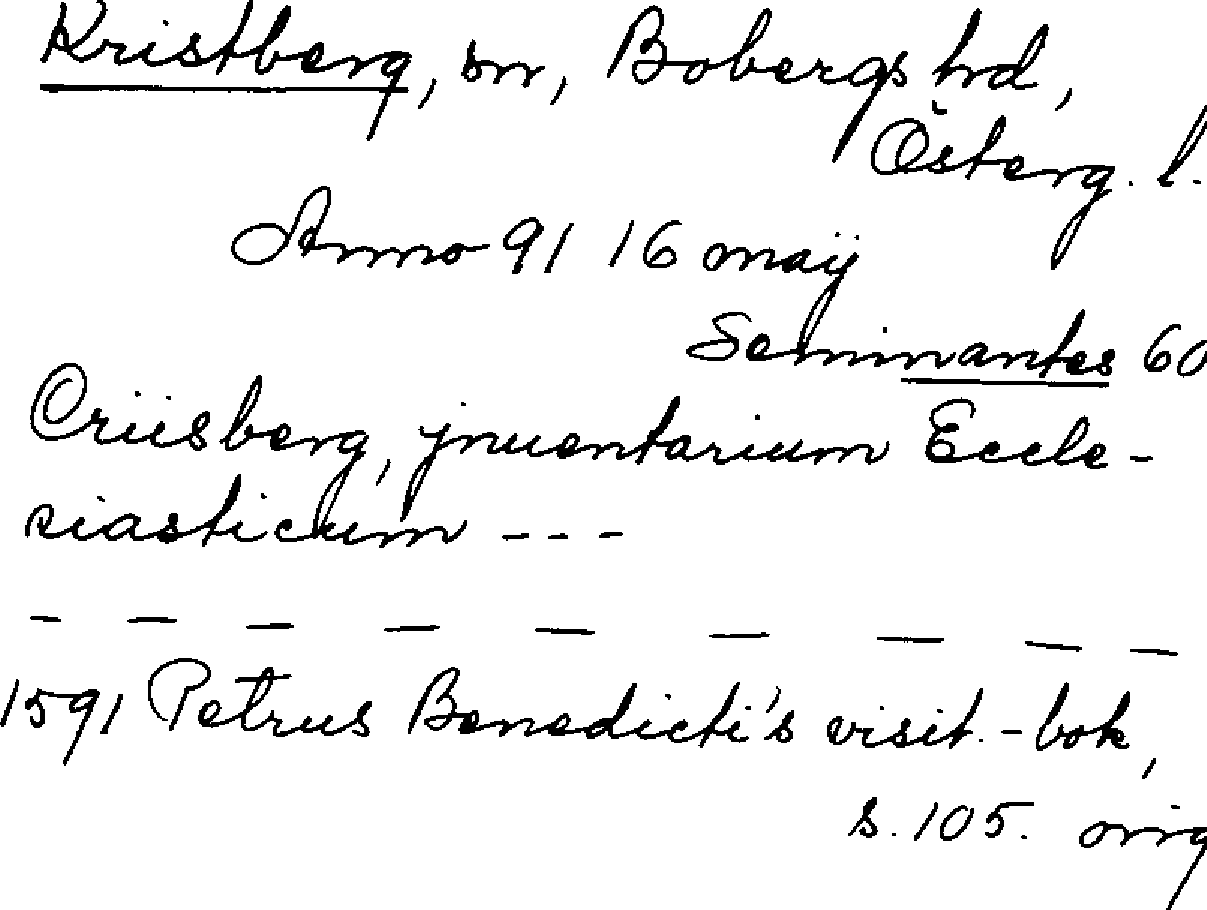 Kristberg, sn, Bobergs hd,
Österg. l.
Anno 91 16 maÿ
Seminantes 60
Criisberg, jnuentarium Eccle-
siasticum ---
— — — — — — — — —
1591 Petrus Benedicti's visit.-bok,
s. 105. orig